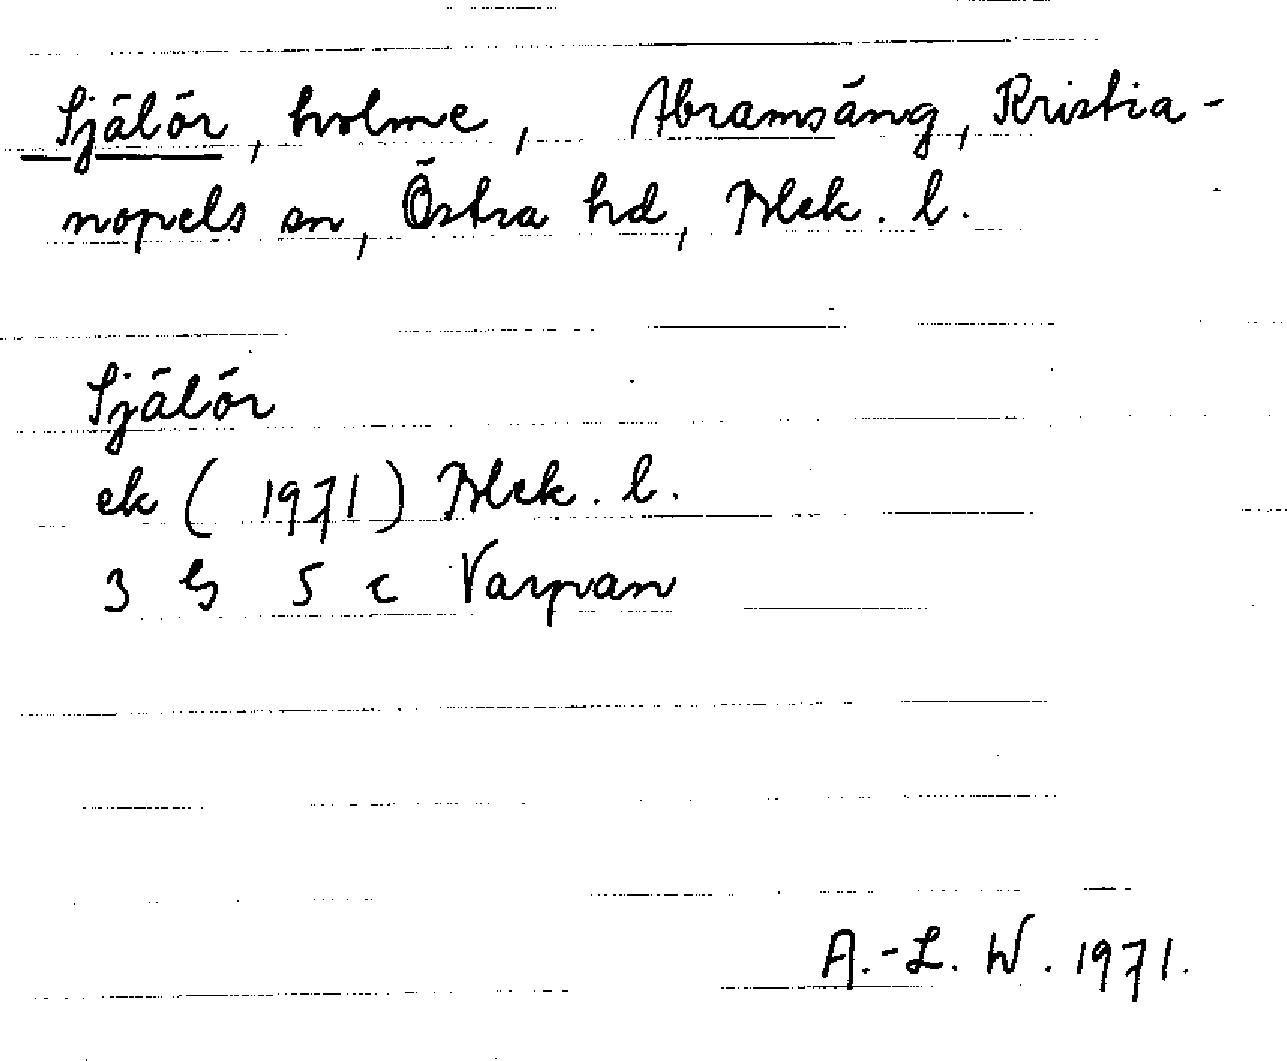 Själör, holme, Abramsäng, Kristia-
nopels sn, Östra hd, Blek. l.
Själör
ek (1971) Blek. l.
3 G 5 c Varpan
A.-L. W. 1971.